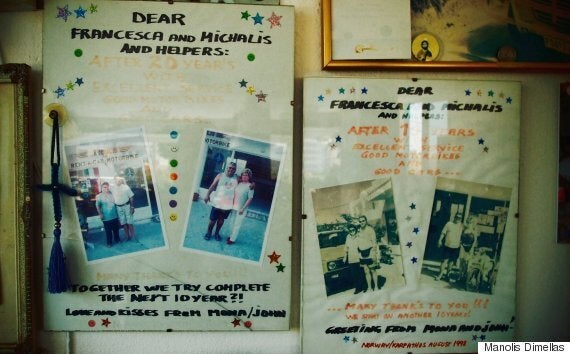 DEAR
FRANCESCA AND MICHALIS
AND HELPERS:
AFTER 20 YEAR'S
WITH
EXCELLENT SERVICE
GOOD
AND
MANY THANKS TO YOU!!
TOGETHER WE TRY COMPLETE
THE NEXT 10 YEAR?!
LOVE AND KISSES FROM MONA/JOHN
RENT A CAR MOTORBIKE
MOTORBIKE
DEAR
FRANCESCA AND MICHALIS
AND HELPERS:
AFTER 15 YEARS
EXCELLENT SERVICE
GOOD MOTORBIKES
AND
GOOD CARS...
... MANY THANK'S TO YOU!!!
WE START ON ANOTHER 10 YEARS!
GREETING FROM MONA AND JOHN!
NORWAY/KARPATHOS AUGUST 1998
Manolis Dimellas